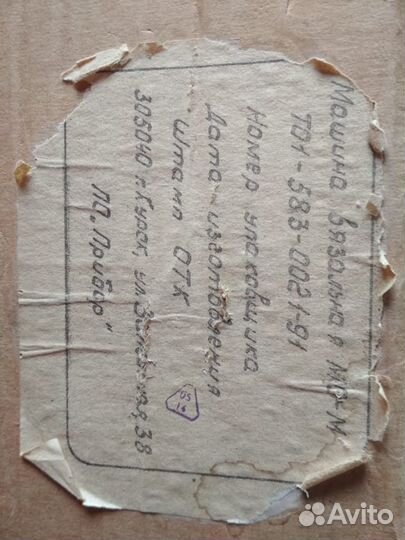 Машина вязальная
ТОИ-583-0021-91
Номер упаковщика
Дата изготовления
штамп ОТК
305040 г. Курск, ул. 38
ПО "Прибор"
50
91
Avito